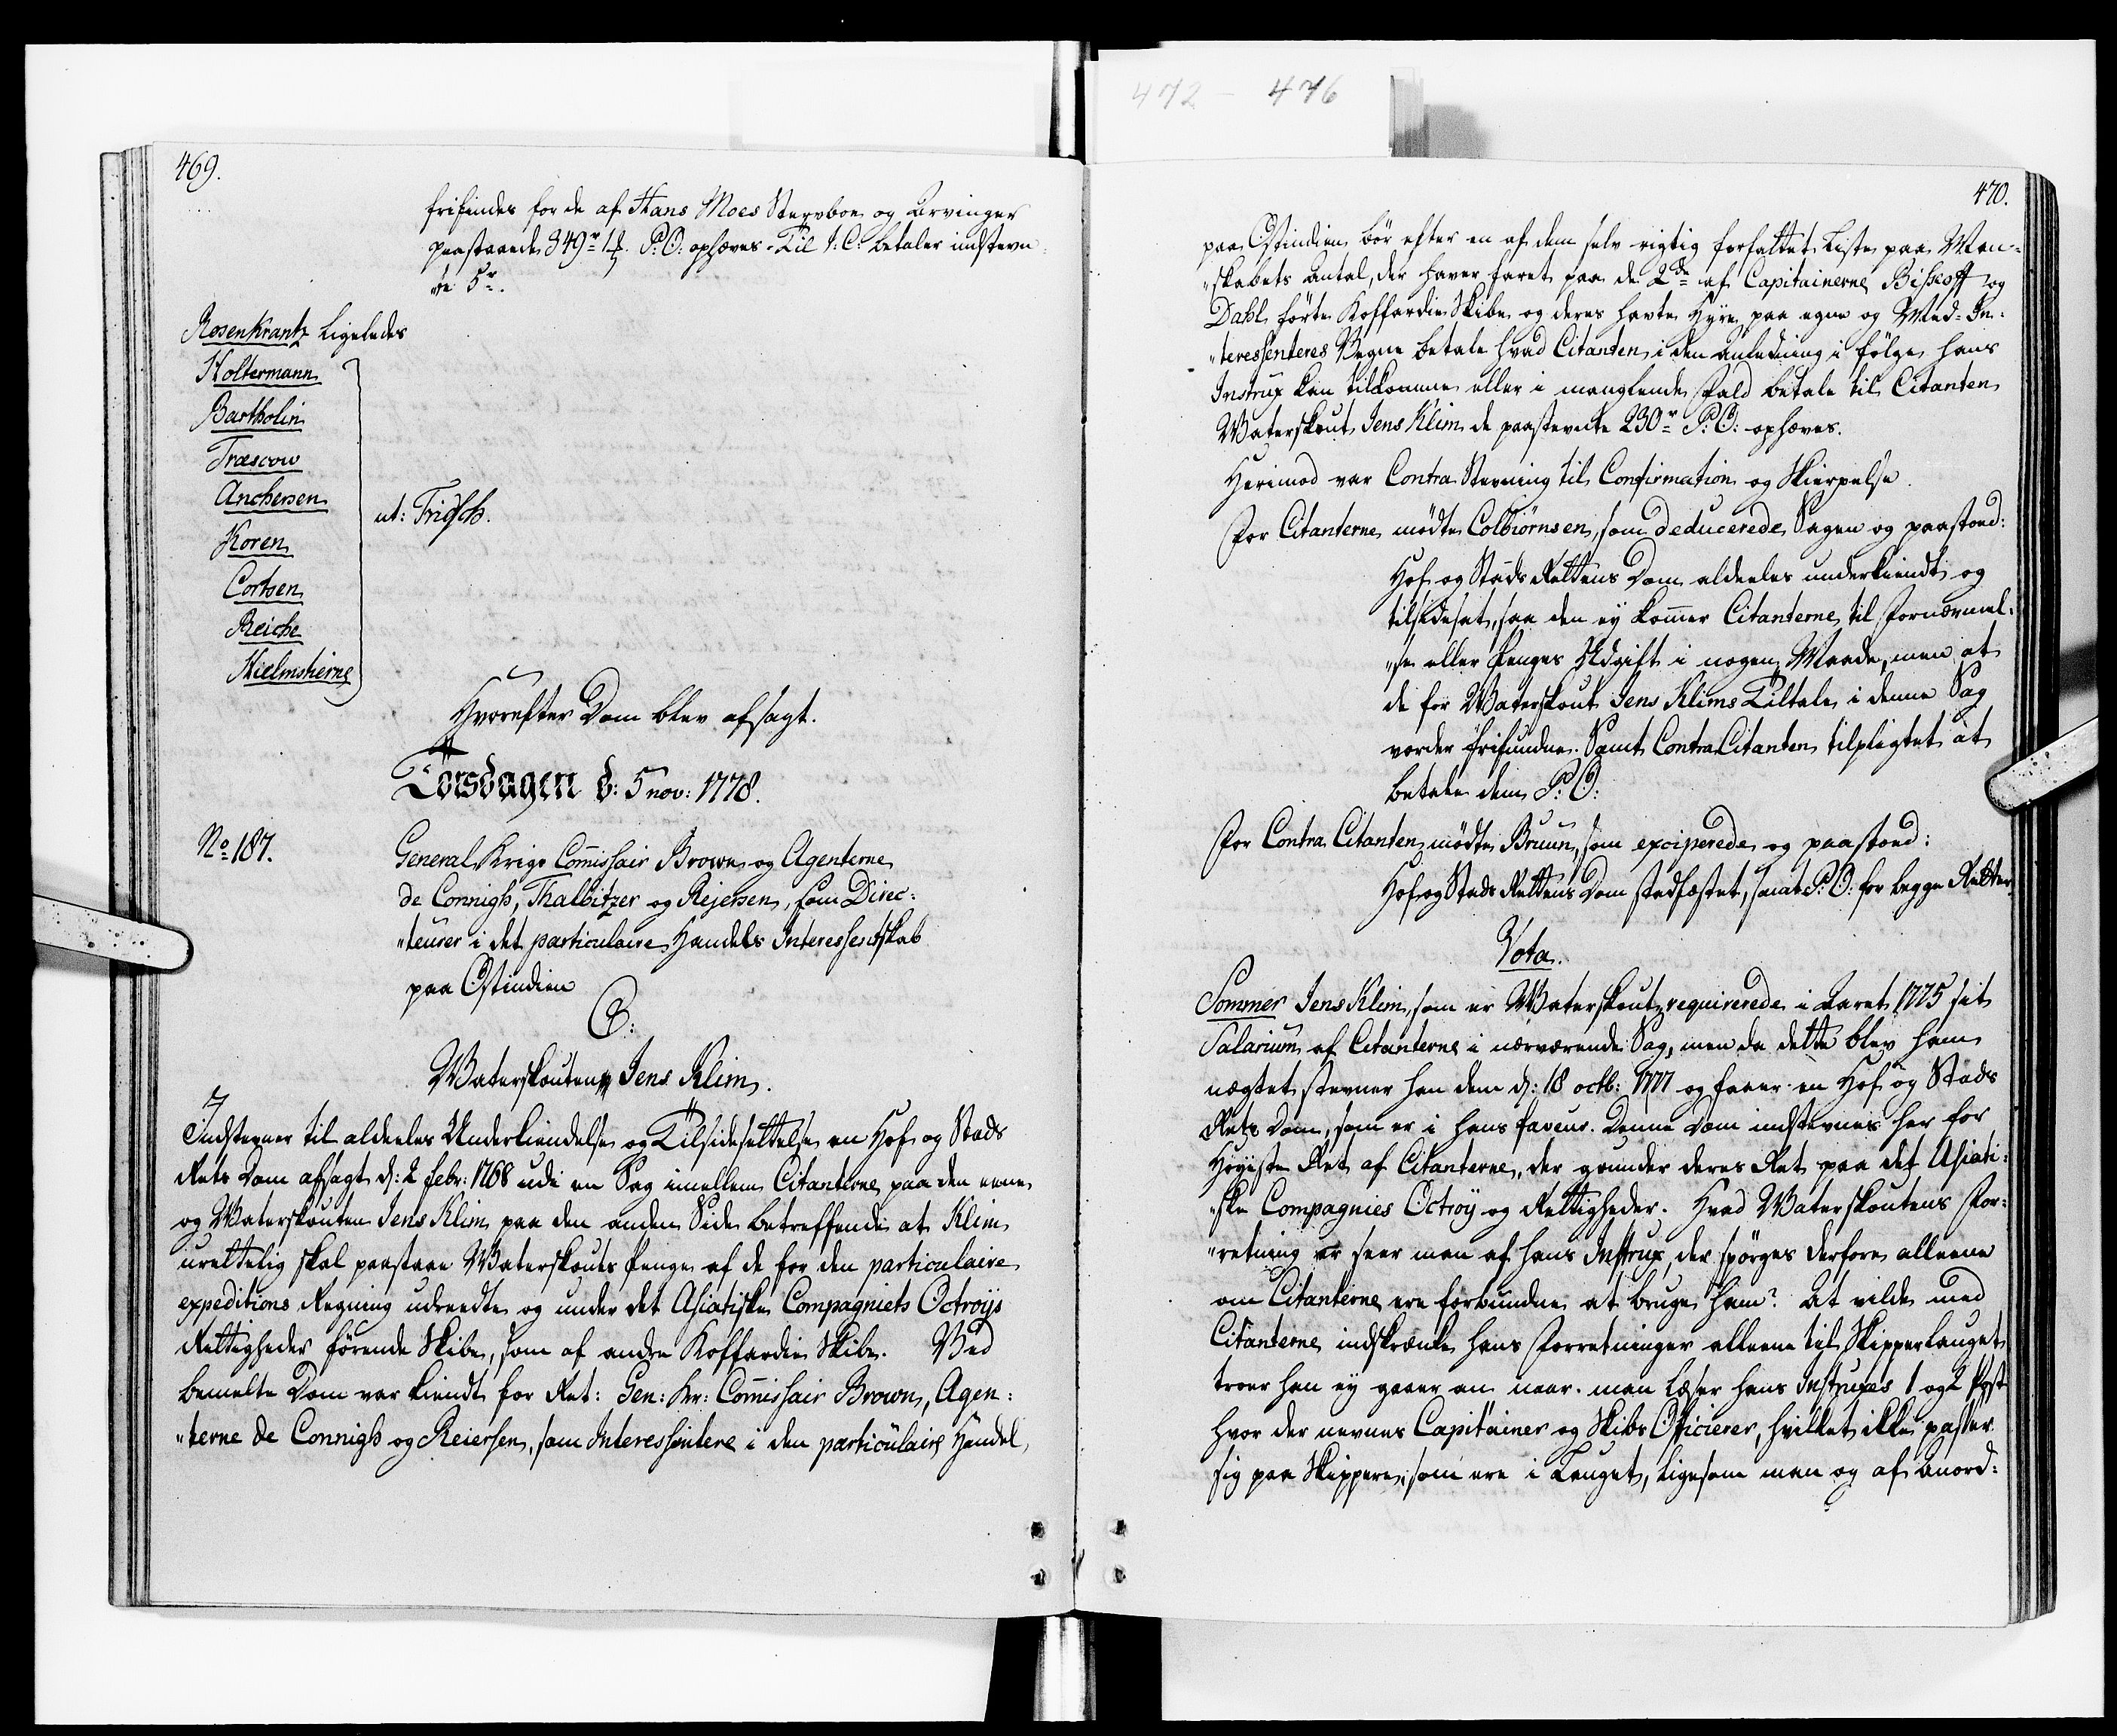 469.
frifindes for de af Hans Moes Stervboe og Arvinger
paastaaende 349rd 1 ß. P: O: ophæves. Til J: C: betaler indstevn-
"te 5rd.
Rosenkrantz ligeledes
Holtermann
Bartholin
Træscow
Anchersen
ut: Fridsch.
Koren
Cortsen
Reiche
Hielmstierne
Hvorefter Dom blev afsagt.
Torsdagen d: 5 nov: 1778.
No 187.
General Krigs Commissair Brown og Agenterne
de Connigh, Thalbitzer og Rejersen, som Direc-
"teurer i det particulaire Handels Interessentskab
paa Ostindien
C:
Waterskouten Jens Klim.
Indstevner til aldeeles Underkiendelse og Tilsidesættelse en Hof og Stads
Rets Dom afsagt d: 2 febr: 1768 udi en Sag imellem Citanterne paa den eene
og Waterskouten Jens Klim paa den anden Side betreffende at Klim
urettelig skal paastaae Waterskouts Penge af de for den particulaire
expeditions Regning udreedte og under det Asiatiske Compagniets Octroys
Rettigheder førende Skibe, som af andre Koffardie Skibe. Ved
bemelte Dom var kiendt for Ret: Gen: Kr: Commissair Brown, Agen-
"terne de Connigh og Reiersen, som Interessentere i den particulaire Handel
472 - 476
470.
paa Ostindien bør efter en af dem selv rigtig forfattet Liste paa Man-
"skabets Antal, der haver faret paa de 2de af Capitainerne Bisshoff og
Dahl førte Koffardie Skibe og deres havte Hyre paa egne og Med-In-
"teressenteres Vegne betale hvad Citanten i den anledning i følge hans
Instrux kan tilkomme eller i manglende Fald betale til Citanten
Waterskout Jens Klim de paastevnte 230rd P: O: ophæves.
Herimod var Contra Stevning til Confirmation og Skierpelse.
For Citanterne mødte Colbiørnsen, som deducerede Sagen og paastod:
Hof og Stads Rettens Dom aldeeles underkiendt og
tilsidesat, saa den ey kommer Citanterne til Fornærmel-
"se eller Penges Udgift i nogen Maade, men at
de for Waterskout Jens Klims Tiltale i denne Sag
vorder frifundne. Samt ContraCitanten tilpligtet at
betale dem P: O:
For Contra Citanten mødte Bruun, som exciperede og paastod:
Hof og Stads Rettens Dom stadfæstet, samt P: O: for begge Retter.
Vota.
Sommer Jens Klim, som er Waterskout, requirerede i Aaret 1775 sit
Salarium af Citanterne i nærværende Sag, men da dette blev ham
nægtet stevner han dem d: 18 octb: 1777 og faaer en Hof og Stads
Rets Dom, som er i hans faveur. Denne Dom indstevnes her for
Høyeste Ret af Citanterne, der grunder deres Ret paa det Asiati-
"ske Compagnies Octroy og Rettigheder. Hvad Waterskoutens For-
"retning er seer man af hans Instrux, der spørges derfore alleene
om Citanterne ere forbundne at bruge ham? At vilde med
Citanterne indskrænke hans Forretninger alleene til Skipperlauget
troer han ey gaaer an naar man læser hans Instruxes 1 og 2 Post
hvor der nevnes Capitainer og Skibs Officierer, hvilket ikke passer
sig paa Skippere, som ere i Lauget, ligesom man og af Anord-